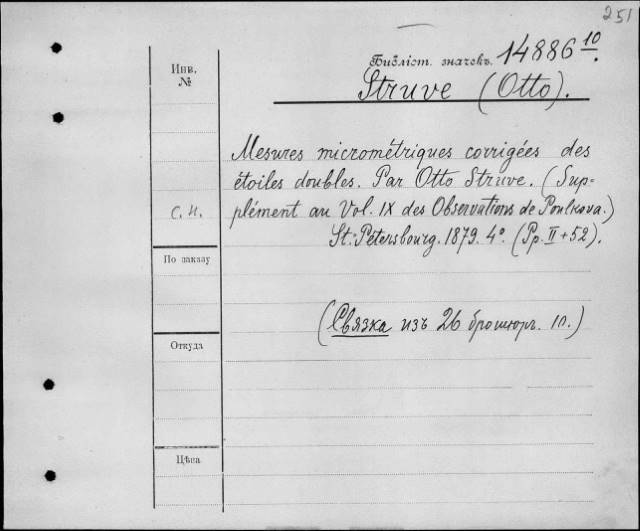 251
Библіот. значекъ. 14886 10.
Struve (Otto).
Инв.
№
Mesures micrométriques corrigées des
étoiles doubles. Par Otto Struve. (Sup-
plément au Vol. IX des Observations de Poulkova.)
St.-Pétersbourg. 1879. 4°. (Pp. II + 52).
С. и.
По заказу
(Связка изъ 26 брошюръ. 10.)
Откуда
Цѣна